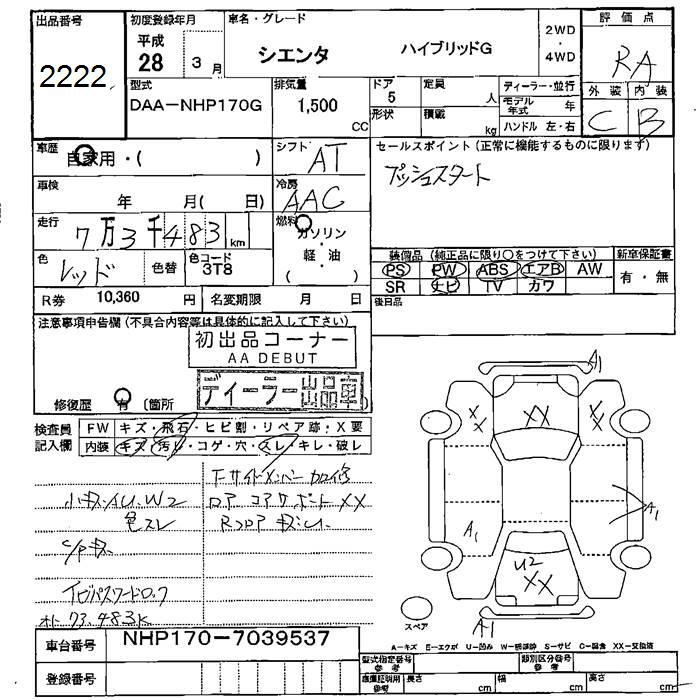 出品番号
2222
初度登録年月
平成
28 3 月
車名・グレード
シエンタ ハイブリッドG
2WD
・
4WD
評価点
RA
外装 内装
C B
型式
DAA-NHP170G
排気量
1,500
CC
ドア
5
形状
定員
人
積載
kg
ディーラー・並行
モデル年式 年
ハンドル 左・右
車歴
自家用・( )
シフト
AT
セールスポイント (正常に機能するものに限ります)
プッシュスタート
車検
年 月( 日)
冷房
AAC
走行
7万3千483 km
燃料
ガソリン
・
軽・油
( )
色
レッド
色替
色コード
3T8
装備品 (純正品に限り○をつけて下さい)
PS PW ABS エアB AW
SR ナビ TV カワ
新車保証書
有・無
R券 10,360 円
名変期限 月 日
後日品
注意事項申告欄 (不具合内容等は具体的に記入して下さい)
初出品コーナー
AA DEBUT
ディーラー出品車
修復歴 有 (箇所
検査員
記入欄
FW キズ・飛石・ヒビ割・リペア跡・X要
内装 キズ・汚れ・コゲ・穴・スレ・キレ・破レ
Fサイドメンバー加修
小キズ・AU.W2
ロア コアサポートXX
色スレ
Rフロア キズU.
C/Pキズ
ナビパスワードロック
オド 73,483K
A1
XX
XX
XX
A1
A1
U2
XX
スペア
A1
A-キズ E-エクボ U-凹み W-補修跡 S-サビ C-腐食 XX-交換済
車台番号
NHP170-7039537
登録番号
型式指定番号
参考
類別区分番号
参考
車庫証明用
参考
長さ cm
幅 cm
高さ cm